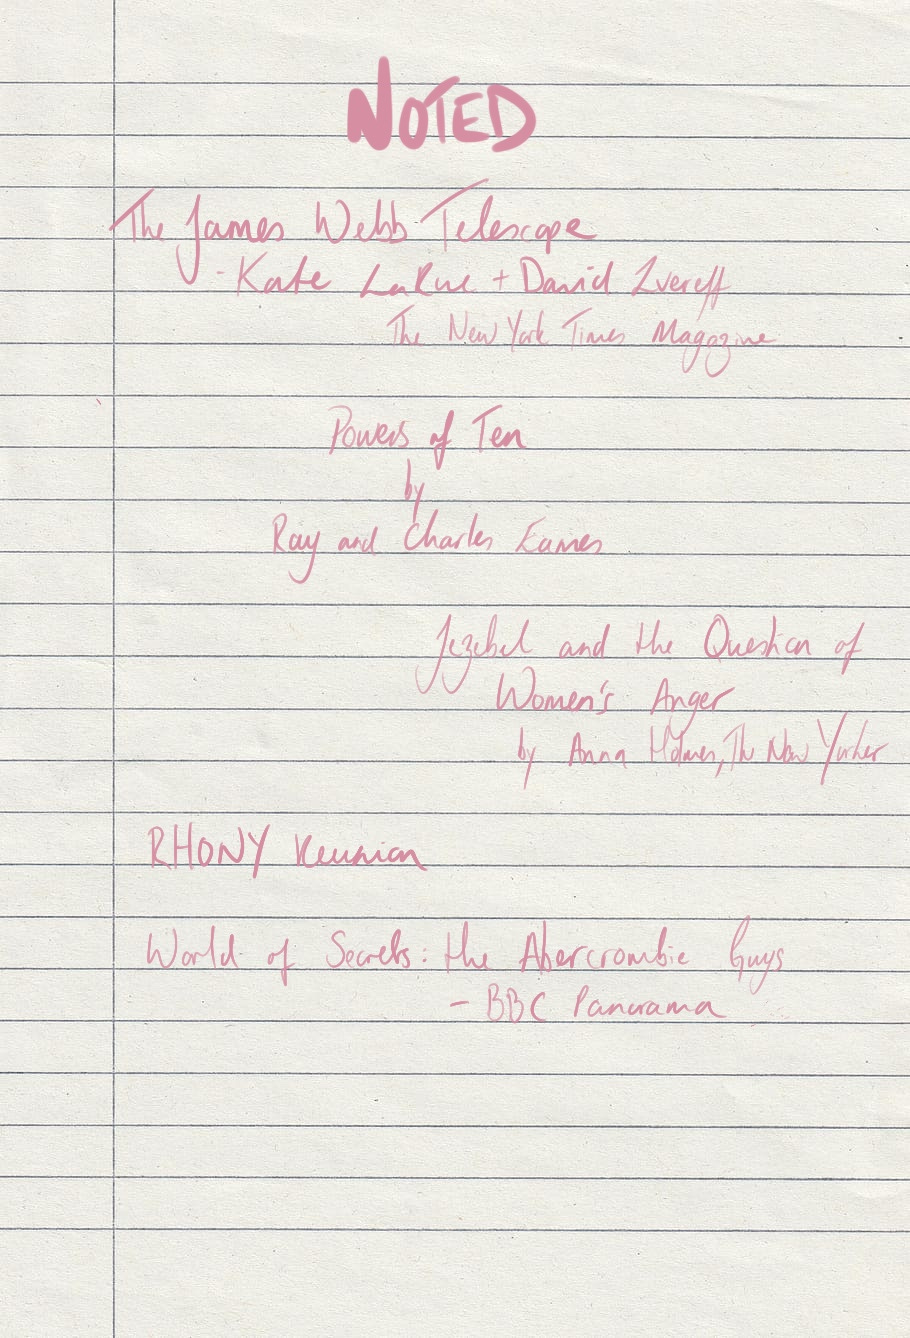 NOTED
The James Webb Telescope
- Kate LaRue + David Evereff
The New York Times Magazine
Powers of Ten
by
Ray and Charles Eames
Jezebel and the Question of
Women's Anger
by Anna Holmes, The New Yorker
RHONY Reunion
World of Secrets: the Abercrombie Guys
- BBC Panorama